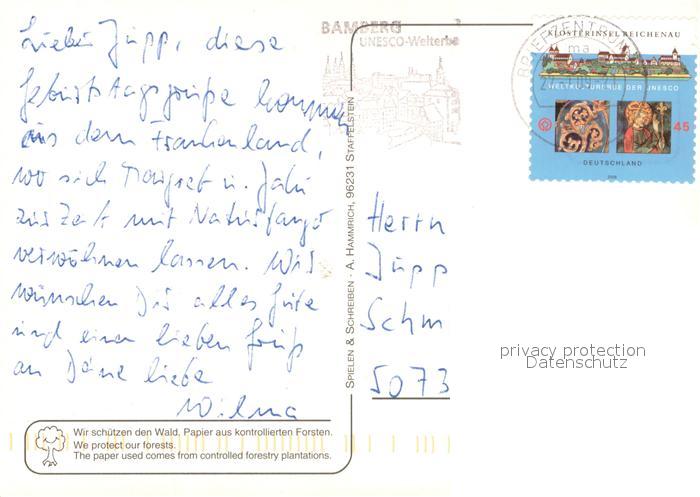 Lieber Jupp, diese
Geburtstagsgrüße kommen
aus dem Frankenland,
wo sich Margret u. John
zur Zeit mit Natursfango
verwöhnen lassen. Wir
wünschen Dir alles Gute
und einen lieben Gruß
an Deine liebe
Wilma
Wir schützen den Wald. Papier aus kontrollierten Forsten.
We protect our forests.
The paper used comes from controlled forestry plantations.
SPIELEN & SCHREIBEN · A. HAMMRICH, 96231 STAFFELSTEIN
BAMBERG
UNESCO-Welterbe
BRIEFZENTRUM
ma
KLOSTERINSEL REICHENAU
WELTKULTURERBE DER UNESCO
45
DEUTSCHLAND
2008
Herrn
Jupp
Schm
5073
privacy protection
Datenschutz